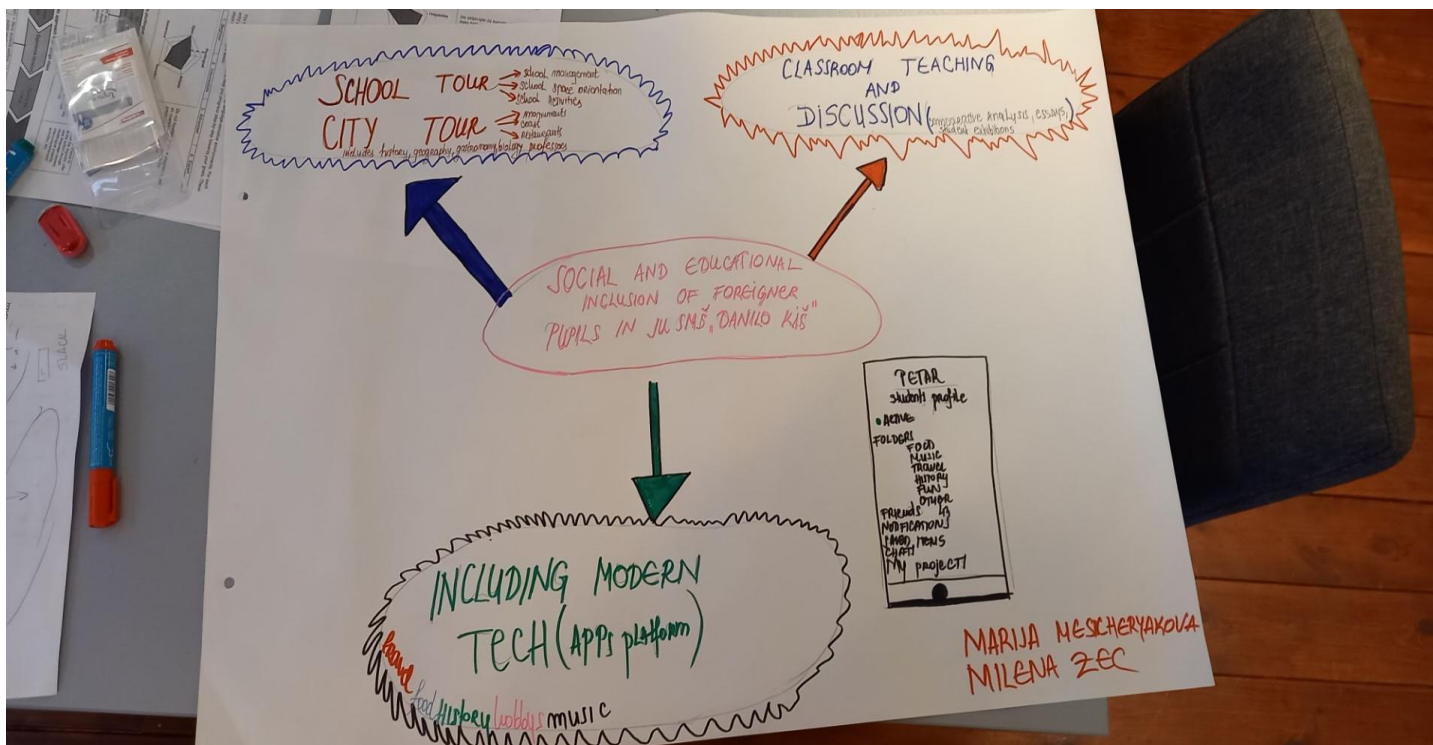 SCHOOL TOUR
school management
school space orientation
school activities
CITY TOUR
monuments
coast
restaurants
includes history, geography, gastronomy, biology professors
CLASSROOM TEACHING
AND
DISCUSSION (comparative analysis, essays,)
student exhibitions
SOCIAL AND EDUCATIONAL
INCLUSION OF FOREIGNER
PUPILS IN JU SMŠ „DANILO KIŠ"
PETAR
students profile
ACTIVE
FOLDERS
FOOD
MUSIC
TRAVEL
HISTORY
FUN
OTHER
FRIENDS 43
NOTIFICATIONS
SAVED ITEMS
CHATS
MY PROJECTI
INCLUDING MODERN
TECH (APPs platform)
travel
food HISTORY hobbys music
MARIJA MESICHERYAKOVA
MILENA ZEC
SLACK